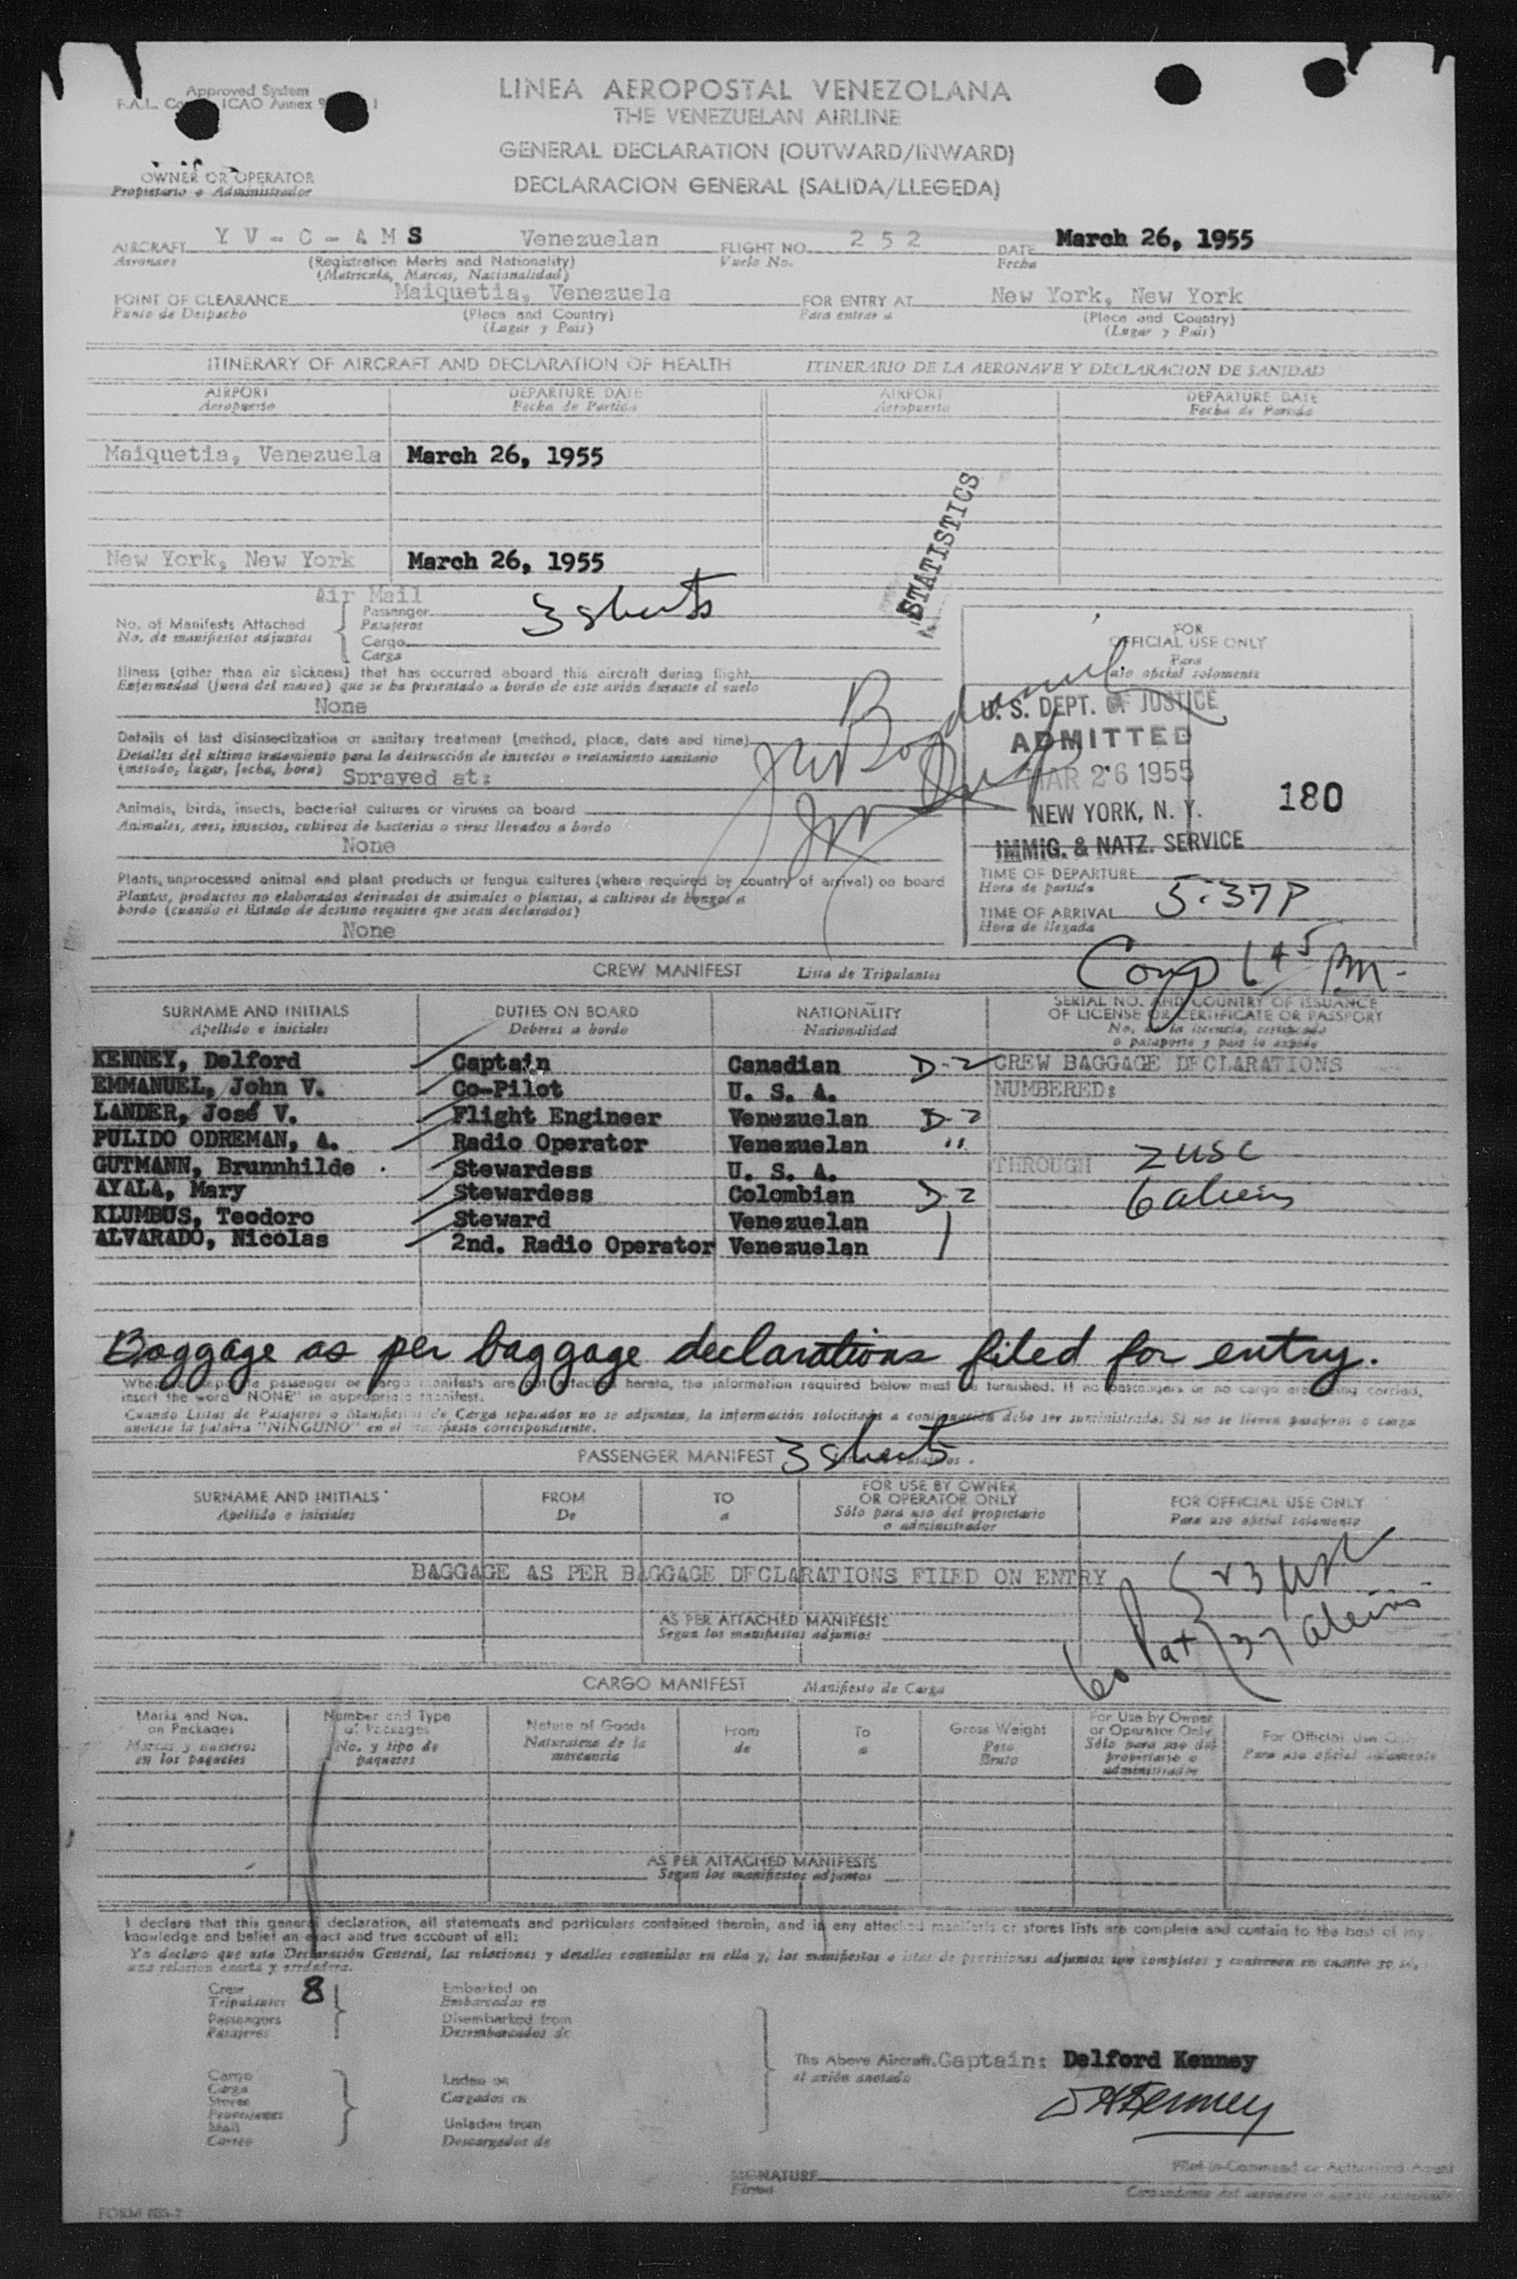 Approved System
LINEA AEROPOSTAL VENEZOLANA
THE VENEZUELAN AIRLINE
GENERAL DECLARATION (OUTWARD/INWARD)
DECLARACION GENERAL (SALIDA/LLEGEDA)
OWNER OR OPERATOR
Propietario o Administrador
AIRCRAFT YV-C-AMS Venezuelan FLIGHT NO. 252 DATE March 26, 1955
Aeronave (Registration Marks and Nationality) Vuelo No. Fecha
(Matricula, Marcas, Nacionalidad)
POINT OF CLEARANCE Maiquetia, Venezuela FOR ENTRY AT New York, New York
Punto de Despacho (Place and Country) Para entrar a (Place and Country)
(Lugar y Pais) (Lugar y Pais)
ITINERARY OF AIRCRAFT AND DECLARATION OF HEALTH ITINERARIO DE LA AERONAVE Y DECLARACION DE SANIDAD
AIRPORT DEPARTURE DATE AIRPORT DEPARTURE DATE
Aeropuerto Fecha de Partida Aeropuerto Fecha de Partida
Maiquetia, Venezuela March 26, 1955
STATISTICS
New York, New York March 26, 1955
Air Mail
No. of Manifests Attached Passenger 3 sheets
No. de manifiestos adjuntos Pasajeros
Cargo
Carga
Illness (other than air sickness) that has occurred aboard this aircraft during flight
Enfermedad (fuera del mareo) que se ha presentado a bordo de este avión durante el vuelo
None
Details of last disinsectization or sanitary treatment (method, place, date and time)
Detalles del ultimo tratamiento para la destrucción de insectos o tratamiento sanitario
(metodo, lugar, fecha, hora) Sprayed at:
Animals, birds, insects, bacterial cultures or viruses on board
Animales, aves, insectos, cultivos de bacterias o virus llevados a bordo
None
Plants, unprocessed animal and plant products or fungus cultures (where required by country of arrival) on board
Plantas, productos no elaborados derivados de animales o plantas, o cultivos de hongos a
bordo (cuando el Estado de destino requiere que sean declarados)
None
FOR
OFFICIAL USE ONLY
Para
uso oficial solamente
U. S. DEPT. OF JUSTICE
ADMITTED
MAR 26 1955
180
NEW YORK, N. Y.
IMMIG. & NATZ. SERVICE
TIME OF DEPARTURE
Hora de partida
TIME OF ARRIVAL 5:37P
Hora de llegada
CREW MANIFEST Lista de Tripulantes
SURNAME AND INITIALS DUTIES ON BOARD NATIONALITY SERIAL NO. AND COUNTRY OF ISSUANCE
Apellido e iniciales Deberes a bordo Nacionalidad OF LICENSE OR CERTIFICATE OR PASSPORT
No. de la licencia, certificado
o pasaporte y pais lo expide
KENNEY, Delford Captain Canadian D-2 CREW BAGGAGE DECLARATIONS
EMMANUEL, John V. Co-Pilot U. S. A. NUMBERED:
LANDER, José V. Flight Engineer Venezuelan D-2
PULIDO ODREMAN, A. Radio Operator Venezuelan "
GUTMANN, Brunnhilde Stewardess U. S. A. THROUGH 2 USC
AYALA, Mary Stewardess Colombian D-2 6 aliens
KLUMBUS, Teodoro Steward Venezuelan
ALVARADO, Nicolas 2nd. Radio Operator Venezuelan
Baggage as per baggage declarations filed for entry.
insert the word "NONE" in appropriate manifest.
Cuando Listas de Pasajeros o Manifiestos de Carga separados no se adjuntan, la información solocitada a continuación debe ser suministrada. Si no se llevan pasajeros o carga
anotese la palabra "NINGUNO" en el manifiesto correspondiente.
PASSENGER MANIFEST 3 sheets
SURNAME AND INITIALS FROM TO FOR USE BY OWNER OR OPERATOR ONLY FOR OFFICIAL USE ONLY
Apellido e iniciales De a Sólo para uso del propietario o administrador Para uso oficial solamente
BAGGAGE AS PER BAGGAGE DECLARATIONS FILED ON ENTRY
AS PER ATTACHED MANIFESTS
Segun los manifiestos adjuntos
37 aliens
CARGO MANIFEST Manifiesto de Carga
Marks and Nos. on Packages Number and Type of Packages Nature of Goods From To Gross Weight For Use by Owner or Operator Only For Official Use Only
Marcas y numeros en los paquetes No. y tipo de paquetes Naturaleza de la mercancia de a Peso Bruto Sólo para uso del propietario o administrador Para uso oficial solamente
AS PER ATTACHED MANIFESTS
Segun los manifiestos adjuntos
I declare that this general declaration, all statements and particulars contained therein, and in any attached manifests or stores lists are complete and contain to the best of my
knowledge and belief an exact and true account of all:
Crew 8 Embarked on
Tripulantes Embarcados en
Passengers Disembarked from
Pasajeros Desembarcados de
The Above Aircraft. Captain: Delford Kenney
el avión anotado
Cargo Laden on
Carga Cargados en
Stores
Mail Unladen from
Correo Descargados de
SIGNATURE
Firma
Pilot-in-Command or Authorized Agent